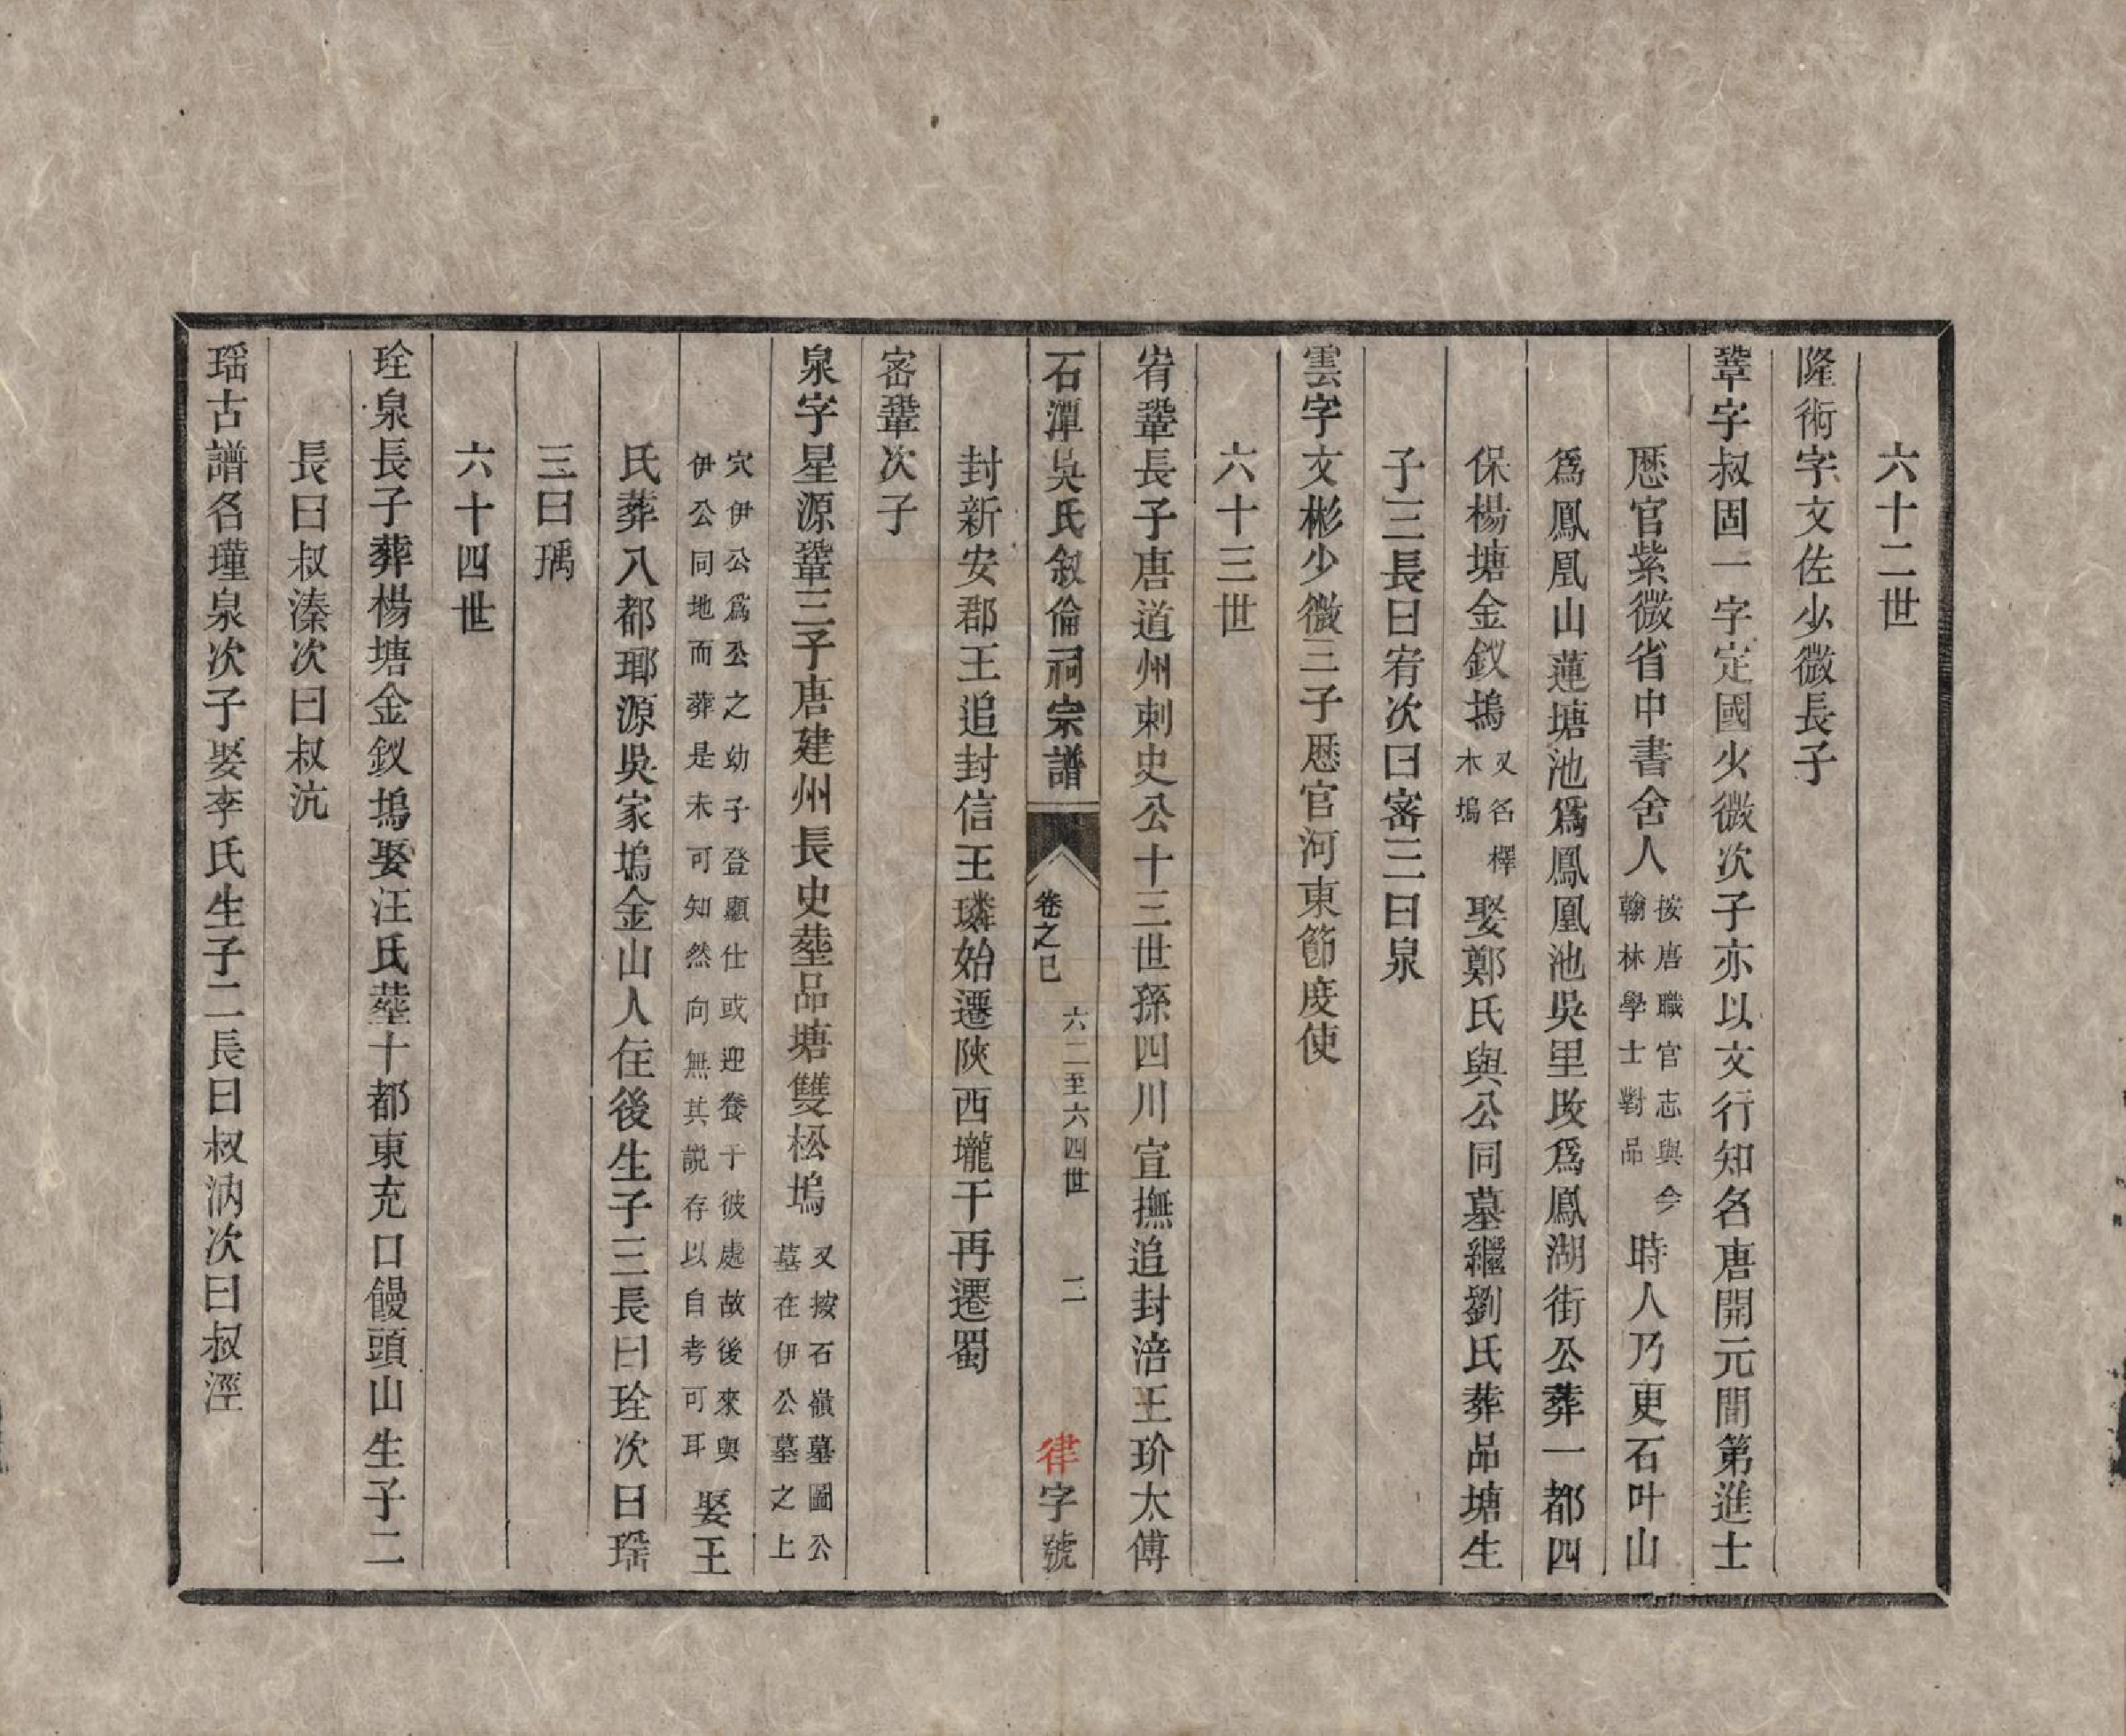 六十二世
隆術字文佐少微長子
鞏字叔固一字定國少微次子亦以文行知名唐開元間第進士
歷官紫微省中書舍人按唐職官志與今翰林學士對品時人乃更石叶山
爲鳳凰山蓮塘池爲鳳凰池吳里改爲鳳湖街公葬一都四
保楊塘金釵塢又名檡木塢娶鄭氏與公同墓繼劉氏葬品塘生
子三長曰宥次曰密三曰泉
雲字文彬少微三子歷官河東節度使
六十三世
宥鞏長子唐道州刺史公十三世孫四川宣撫追封涪王玠太傅
石潭吳氏敘倫祠宗譜 卷之巳 六二至六四世 二 律字號
封新安郡王追封信王璘始遷陝西壠干再遷蜀
密鞏次子
泉字星源鞏三子唐建州長史塟品塘雙松塢又按石嶺墓圖公墓在伊公墓之上
穴伊公爲公之幼子登顯仕或迎養于彼處故後來與伊公同地而葬是未可知然向無其說存以自考可耳娶王
氏葬八都瑯源吳家塢金山人住後生子三長曰琻次曰瑶
三曰瑀
六十四世
琻泉長子葬楊塘金釵塢娶汪氏塟十都東充口饅頭山生子二
長曰叔溱次曰叔沆
瑶古譜名瑾泉次子娶李氏生子二長曰叔汭次曰叔涇